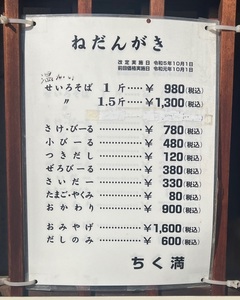 ねだんがき
改定実施日 令和5年10月1日
前回価格実施日 令和元年10月1日
せいろそば 1斤‥‥ ¥ 980(税込)
〃 1.5斤‥‥ ¥1,300(税込)
さけ・びーる ‥‥‥‥ ¥ 780(税込)
小びーる ‥‥‥‥ ¥ 480(税込)
つきだし ‥‥‥‥ ¥ 120(税込)
ぜろびーる ‥‥‥‥ ¥ 380(税込)
さいだー ‥‥‥‥ ¥ 330(税込)
たまご・やくみ ‥‥‥‥ ¥ 80(税込)
おかわり ‥‥‥‥ ¥ 900(税込)
おみやげ ‥‥‥‥ ¥1,600(税込)
だしのみ ‥‥‥‥ ¥ 600(税込)
ちく満